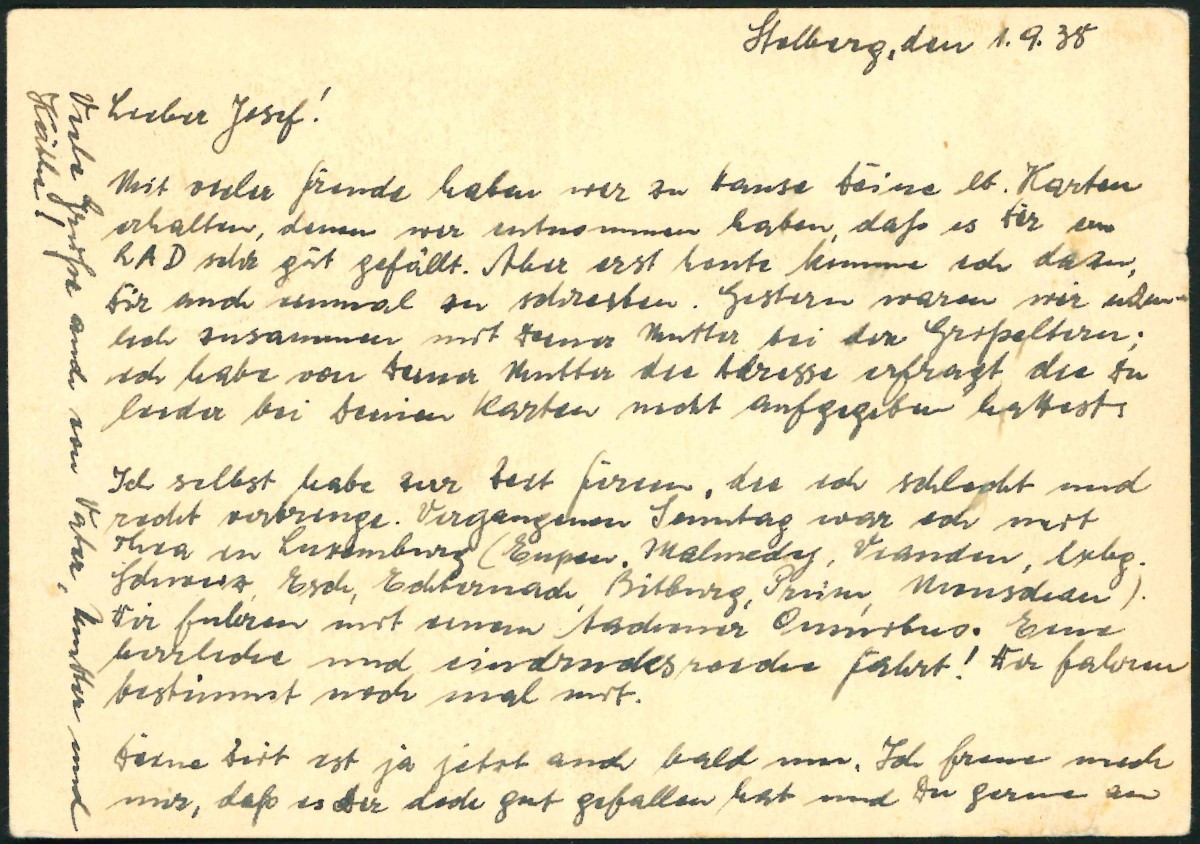 Stolberg, den 1.9.38
Lieber Josef!
Mit vieler Freude haben wir zu Hause Deine lb. Karten
erhalten, denen wir entnommen haben, daß es Dir im
RAD sehr gut gefällt. Aber erst heute komme ich dazu,
Dir auch einmal zu schreiben. Gestern waren wir
zusammen mit Deiner Mutter bei der Großeltern;
ich habe von Deiner Mutter die Adresse erfragt die Du
leider bei Deinen Karten nicht aufgegeben hattest.
Ich selbst habe zur Zeit Ferien, die ich schlecht und
recht verbringe. Vergangenen Sonntag war ich mit
Thea in Luxemburg (Eupen, Malmedy, Vianden, Lxbg.
Schweiz, Esch, Echternach, Bitburg, Prüm, Monschau).
Wir fuhren mit einem Aachener Omnibus. Eine
herrliche und eindrucksreiche Fahrt! Wir fahren
bestimmt noch mal mit.
Deine Zeit ist ja jetzt auch bald um. Ich freue mich
nur, daß es Dir doch gut gefallen hat und Du gerne an
Viele Grüße auch von Vater, Mutter und
Käthe!